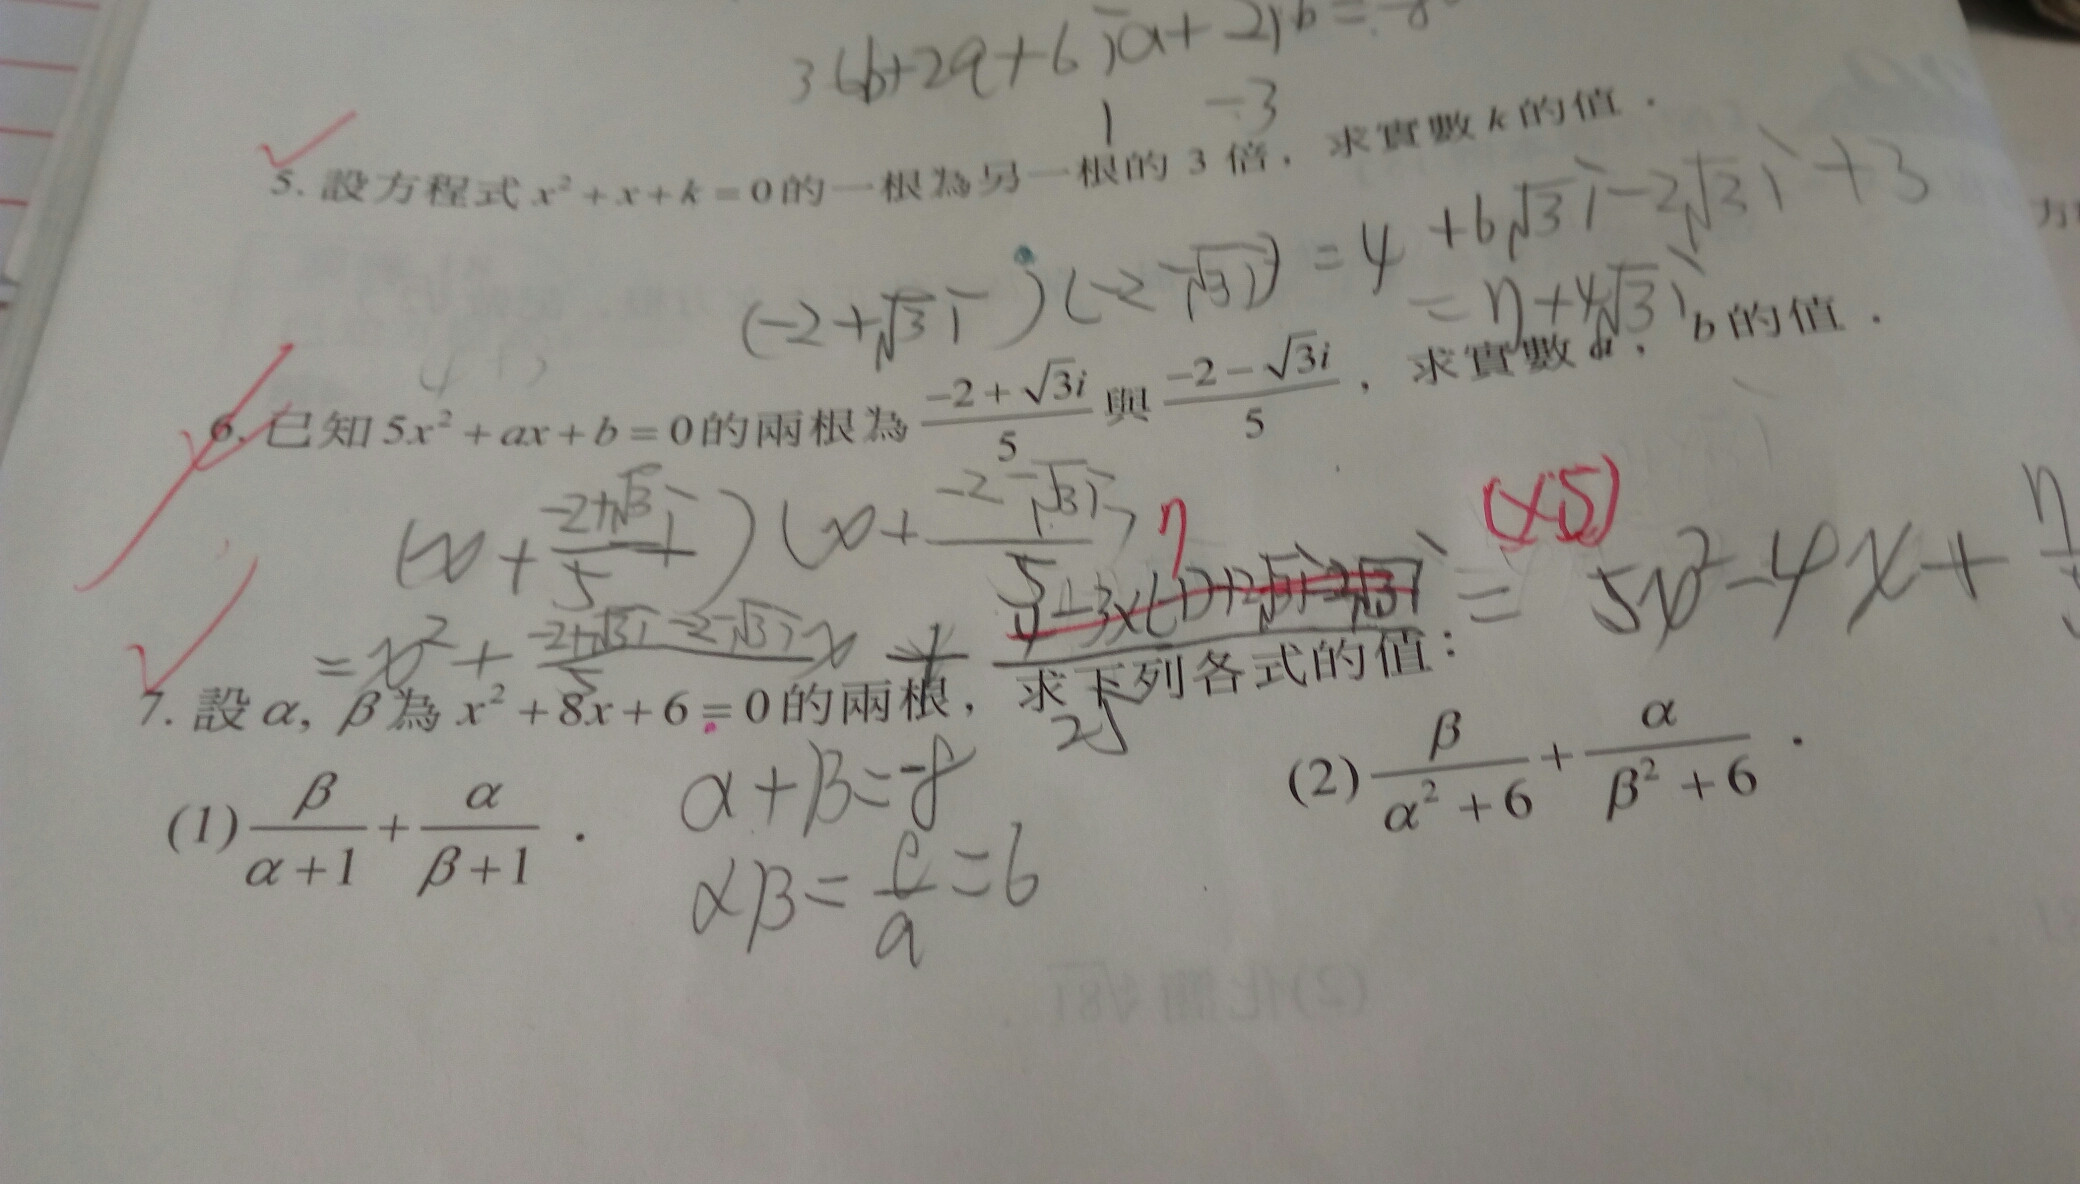 36b+2a+6ia+2ib=-8
1 -3
5. 設方程式 x² + x + k = 0 的一根為另一根的 3 倍，求實數 k 的值．
(-2+√3i)(-2-√3i) = 4 +6√3i-2√3i+3
= 7+4√3i
6. 已知 5x² + ax + b = 0 的兩根為 (-2 + √3i)/5 與 (-2 - √3i)/5，求實數 a，b 的值．
(x + (-2+√3i)/5)(x + (-2-√3i)/5)
= x² + (-2+√3i-2-√3i)/5 x + 7/25 = (×5) 5x² - 4x + 7/5
7. 設 α, β 為 x² + 8x + 6 = 0 的兩根，求下列各式的值：
(1) β/(α+1) + α/(β+1)．
(2) β/(α² + 6) + α/(β² + 6)．
α+β=-8
αβ = c/a = 6